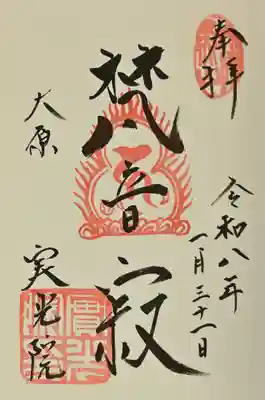 奉拝
令和八年
一月三十一日
梵音寂
大原
実光院